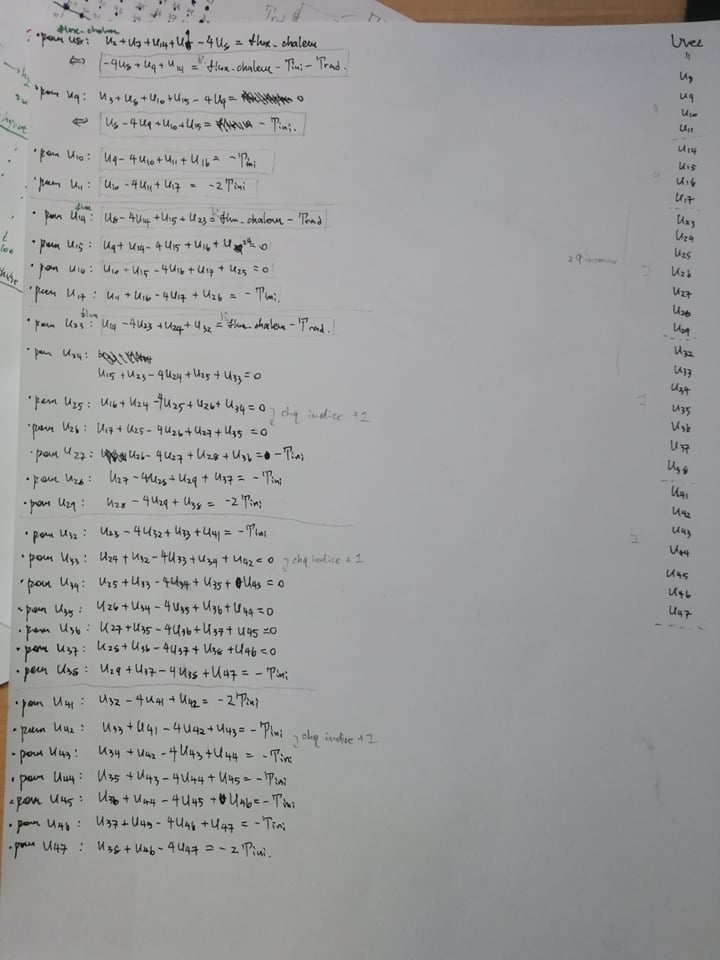 flux-chaleur
• pour U8: U2 + U7 + U14 + U9 - 4U8 = flux-chaleur
⇔ -4U8 + U9 + U14 = flux-chaleur - Tini - Trad.
• pour U9: U3 + U8 + U10 + U15 - 4U9 = 0
⇔ U8 - 4U9 + U10 + U15 = - Tini.
• pour U10: U9 - 4U10 + U11 + U16 = - Tini
• pour U11: U10 - 4U11 + U17 = - 2 Tini
flux
• pour U14: U8 - 4U14 + U15 + U23 = flux-chaleur - Trad
• pour U15: U9 + U14 - 4U15 + U16 + U24 = 0
• pour U16: U10 + U15 - 4U16 + U17 + U25 = 0
• pour U17: U11 + U16 - 4U17 + U26 = - Tini.
flux
• pour U23: U14 - 4U23 + U24 + U32 = flux-chaleur - Trad.
• pour U24:
U15 + U23 - 4U24 + U25 + U33 = 0
• pour U25: U16 + U24 - 4U25 + U26 + U34 = 0
chq indice +1
• pour U26: U17 + U25 - 4U26 + U27 + U35 = 0
• pour U27: U26 - 4U27 + U28 + U36 = - Tini
• pour U28: U27 - 4U28 + U29 + U37 = - Tini
• pour U29: U28 - 4U29 + U38 = - 2 Tini
• pour U32: U23 - 4U32 + U33 + U41 = - Tini
• pour U33: U24 + U32 - 4U33 + U34 + U42 = 0
chq indice +1
• pour U34: U25 + U33 - 4U34 + U35 + U43 = 0
• pour U35: U26 + U34 - 4U35 + U36 + U44 = 0
• pour U36: U27 + U35 - 4U36 + U37 + U45 = 0
• pour U37: U28 + U36 - 4U37 + U38 + U46 = 0
• pour U38: U29 + U37 - 4U38 + U47 = - Tini
• pour U41: U32 - 4U41 + U42 = - 2 Tini
• pour U42: U33 + U41 - 4U42 + U43 = - Tini
chq indice +1
• pour U43: U34 + U42 - 4U43 + U44 = - Tini
• pour U44: U35 + U43 - 4U44 + U45 = - Tini
• pour U45: U36 + U44 - 4U45 + U46 = - Tini
• pour U46: U37 + U45 - 4U46 + U47 = - Tini
• pour U47: U38 + U46 - 4U47 = - 2 Tini.
Uvec
=
U8
U9
U10
U11
U14
U15
U16
U17
U23
U24
U25
U26
U27
U28
U29
U32
U33
U34
U35
U36
U37
U38
U41
U42
U43
U44
U45
U46
U47